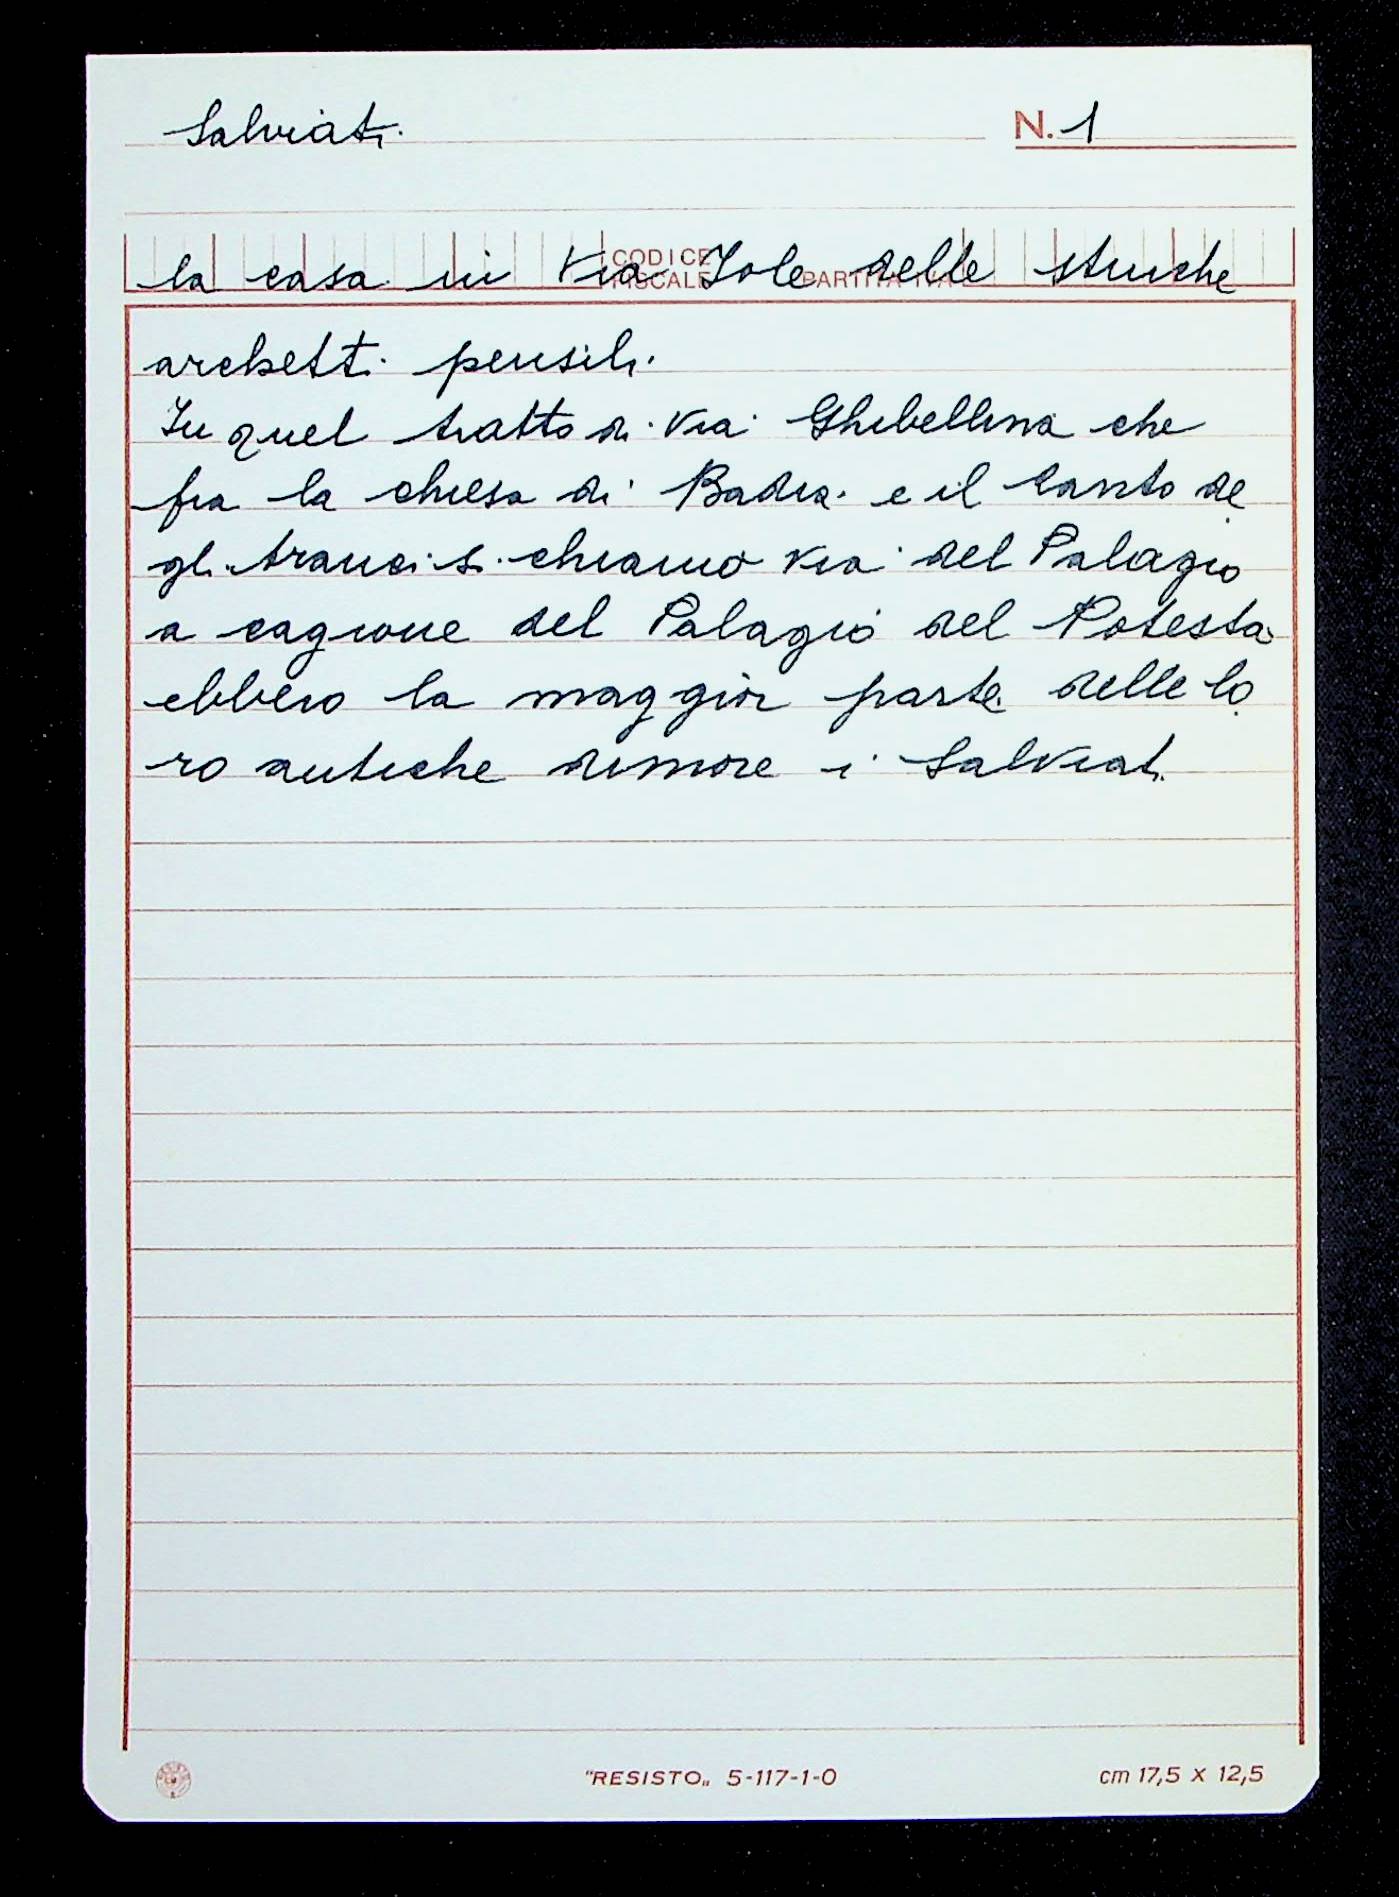 Salviati
N. 1
CODICE FISCALE PARTITA IVA
la casa in Via Isole delle stinche
archetti pensili.
In quel tratto di Via Ghibellina che
fra la chiesa di Badia e il Canto de
gli Aranci si chiamò Via del Palagio
a cagione del Palagio del Potestà
ebbero la maggior parte delle lo
ro antiche dimore i Salviati
"RESISTO„ 5-117-1-0
cm 17,5 x 12,5